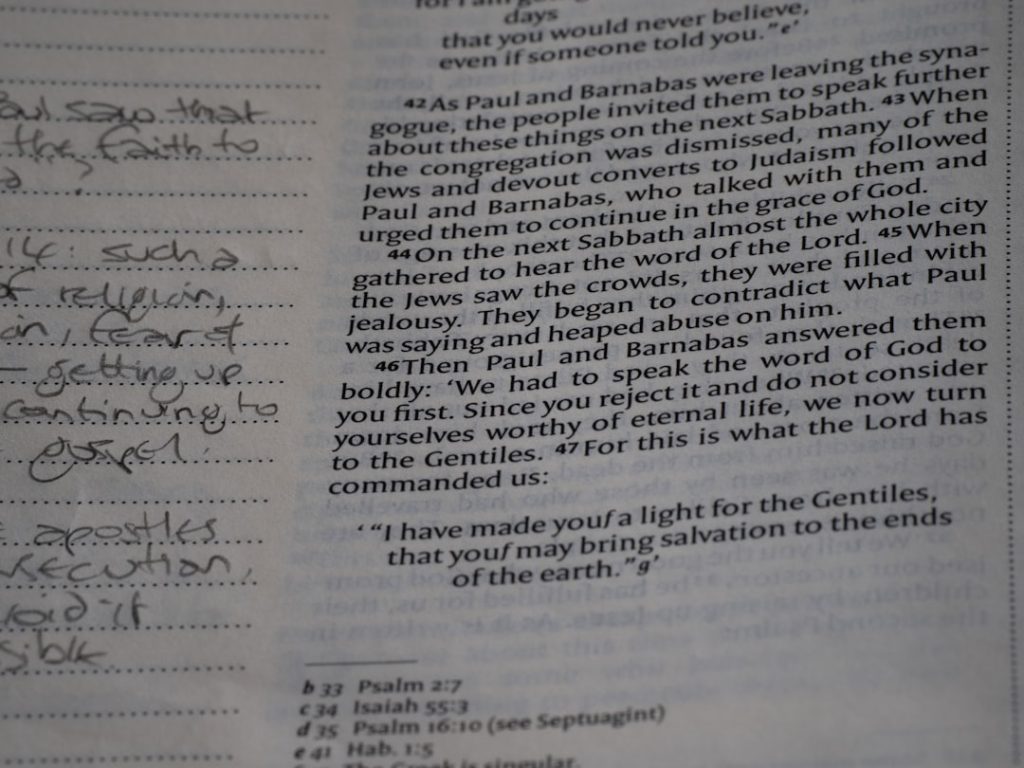 Paul saw that
the faith to
?
14: such a
of religion,
fear of
– getting up
continuing to
gospel.
apostles
it
days
that you would never believe,
even if someone told you.”e’
42 As Paul and Barnabas were leaving the syna-
gogue, the people invited them to speak further
about these things on the next Sabbath. 43 When
the congregation was dismissed, many of the
Jews and devout converts to Judaism followed
Paul and Barnabas, who talked with them and
urged them to continue in the grace of God.
44 On the next Sabbath almost the whole city
gathered to hear the word of the Lord. 45 When
the Jews saw the crowds, they were filled with
jealousy. They began to contradict what Paul
was saying and heaped abuse on him.
46 Then Paul and Barnabas answered them
boldly: ‘We had to speak the word of God to
you first. Since you reject it and do not consider
yourselves worthy of eternal life, we now turn
to the Gentiles. 47 For this is what the Lord has
commanded us:
‘ “I have made you f a light for the Gentiles,
that you f may bring salvation to the ends
of the earth.”g’
b 33 Psalm 2:7
c 34 Isaiah 55:3
d 35 Psalm 16:10 (see Septuagint)
e 41 Hab. 1:5
The Greek is singular.